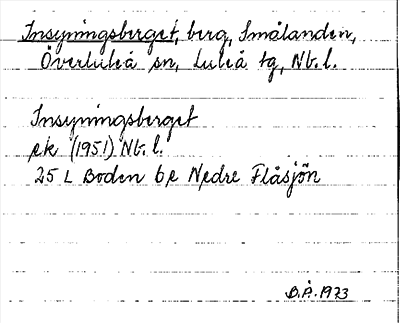 Insyningsberget, berg, Smålanden,
Överluleå sn, Luleå tg, Nb.l.
Insyningsberget
ek (1951) Nb.l.
25 L Boden 6 e Nedre Flåsjön
B.Å. 1973